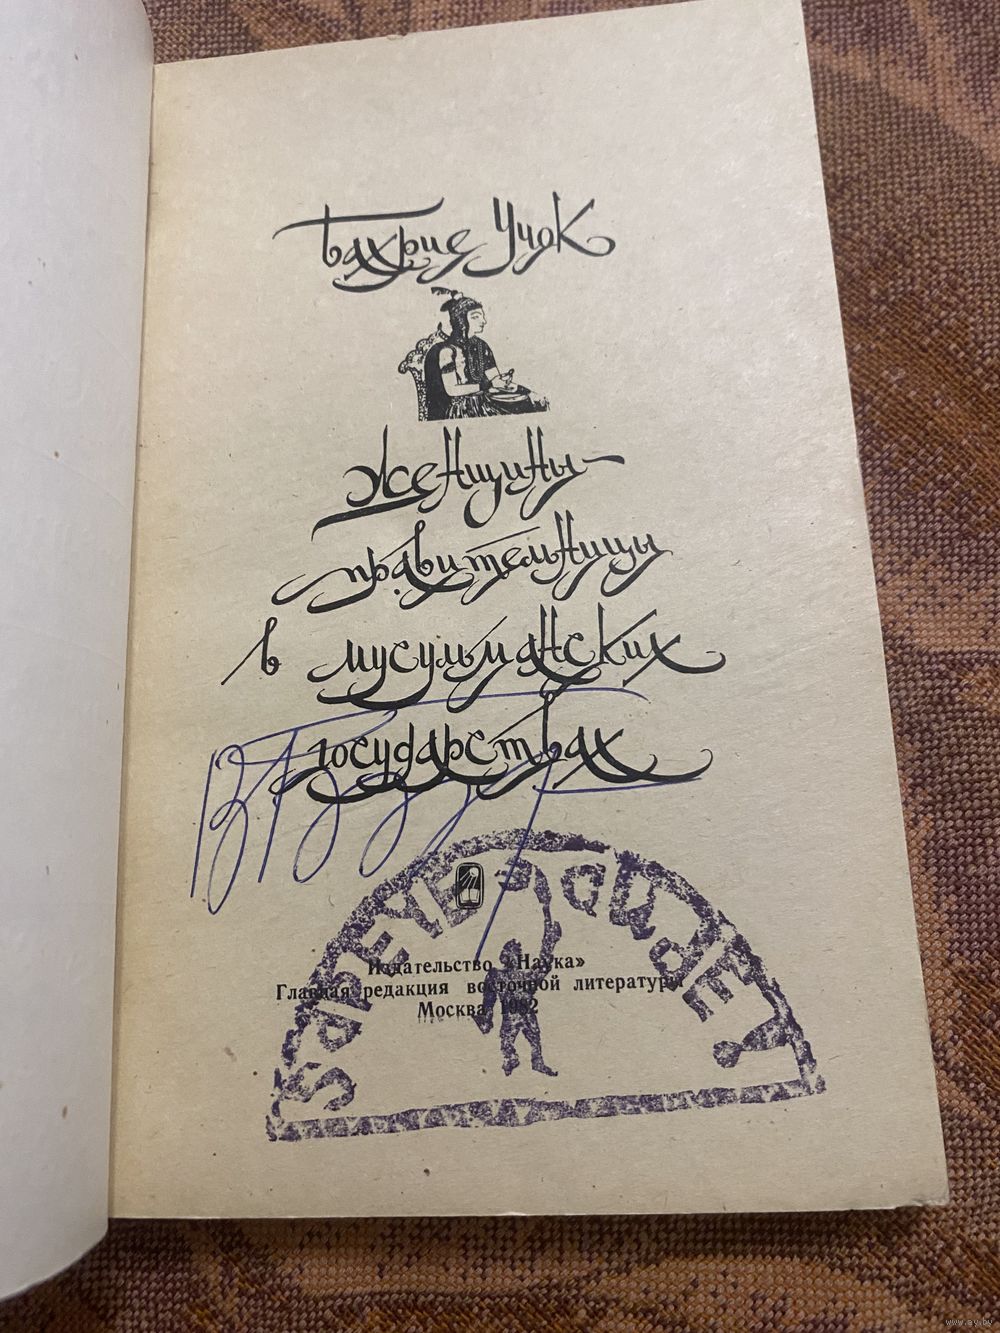 Бахрие Учок
Женщины–
правительницы
в мусульманских
государствах
Издательство «Наука»
Главная редакция восточной литературы
Москва 1982
www.ay.by